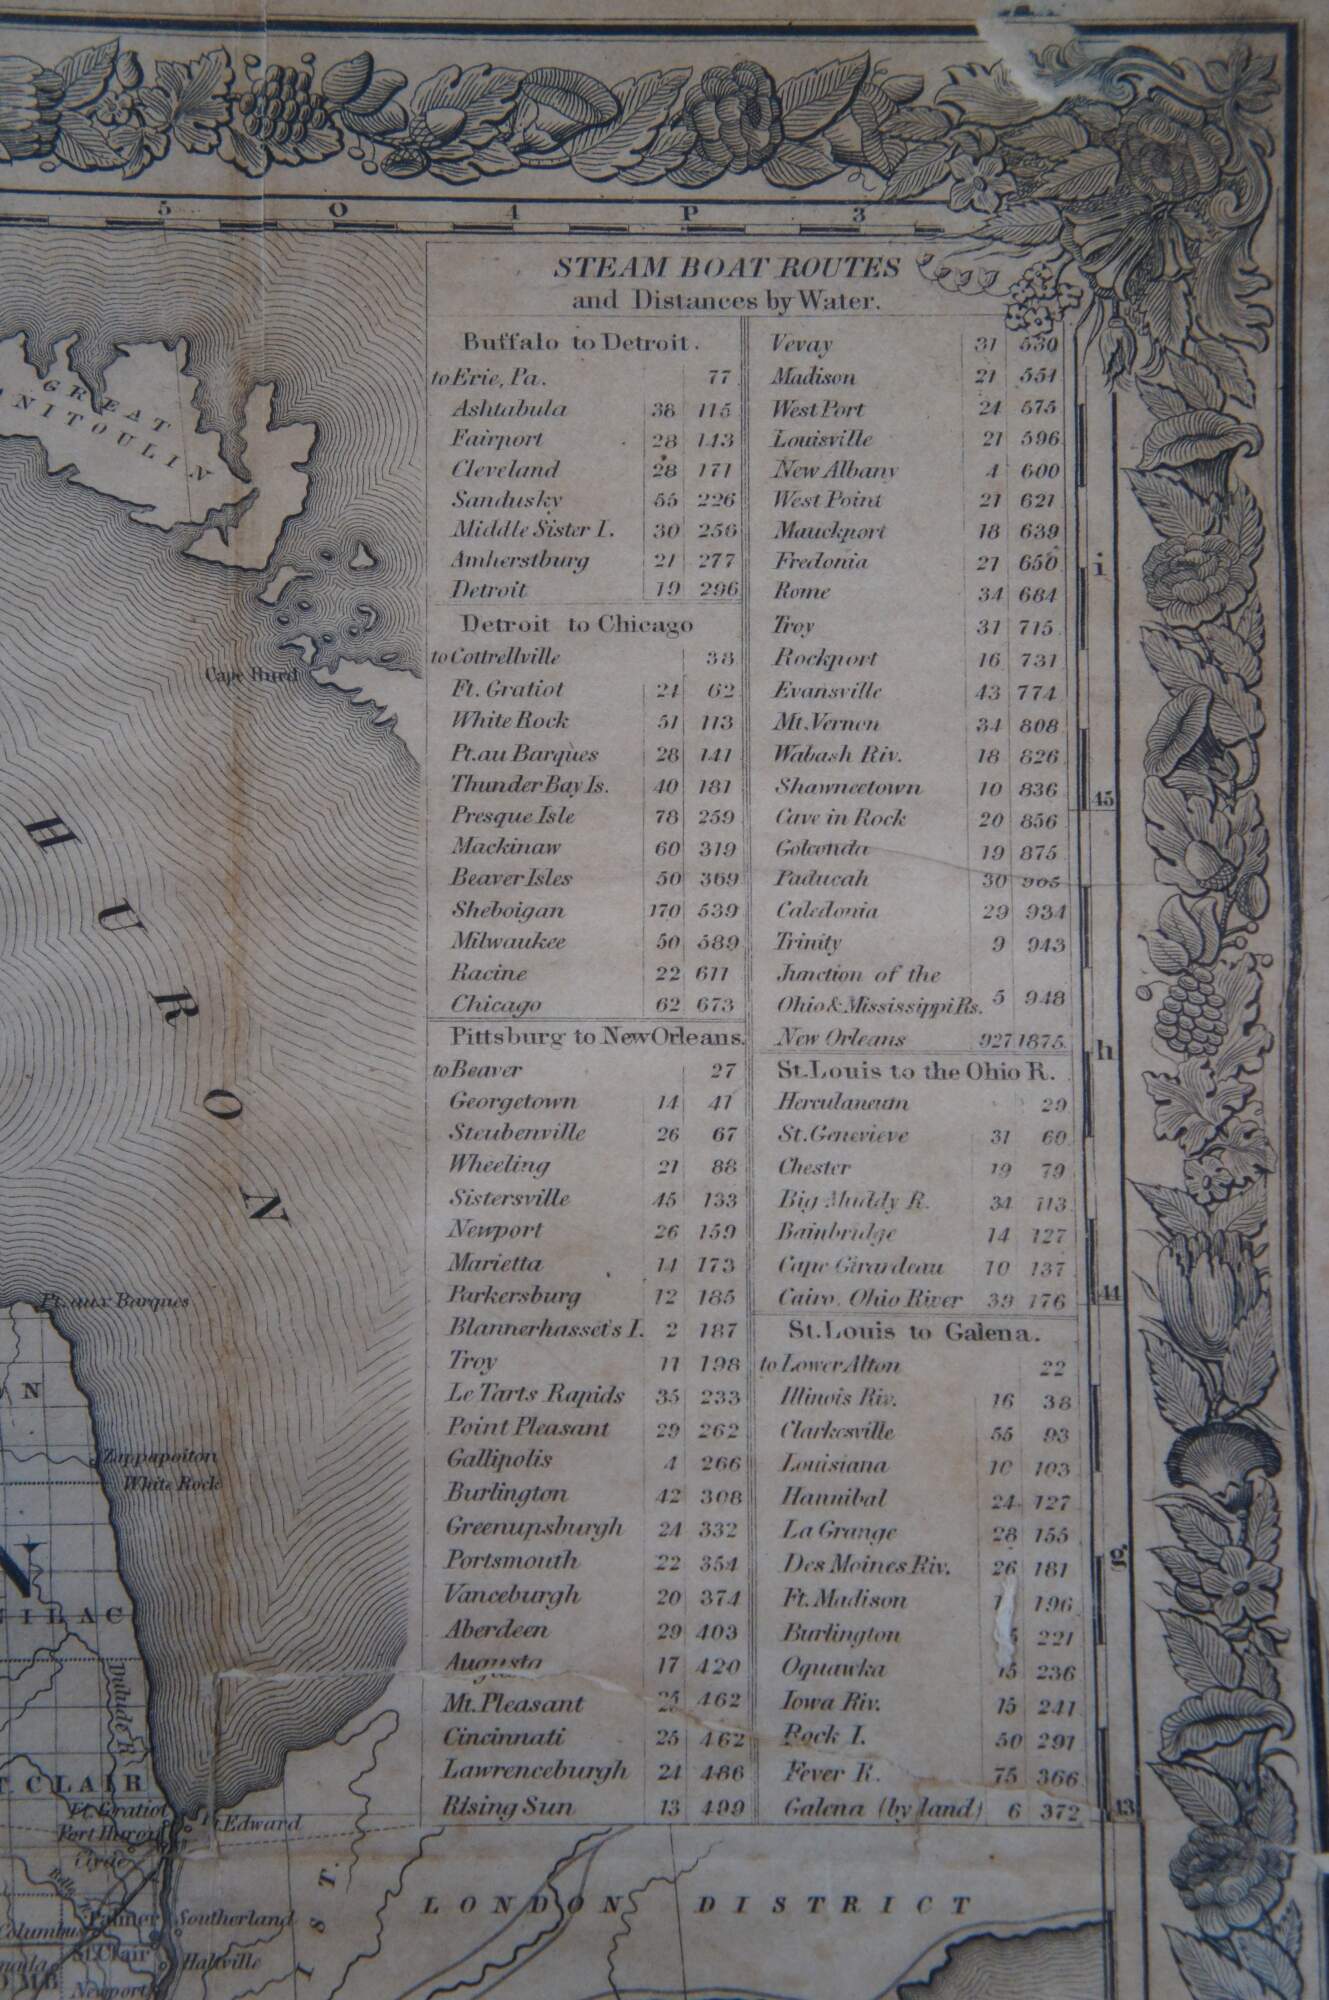 5 O 4 P 3
STEAM BOAT ROUTES
and Distances by Water.
Buffalo to Detroit.
to Erie, Pa. 77
Ashtabula 38 115
Fairport 28 143
Cleveland 28 171
Sandusky 55 226
Middle Sister I. 30 256
Amherstburg 21 277
Detroit 19 296
Detroit to Chicago
to Cottrellville 38
Ft. Gratiot 24 62
White Rock 51 113
Pt. au Barques 28 141
Thunder Bay Is. 40 181
Presque Isle 78 259
Mackinaw 60 319
Beaver Isles 50 369
Sheboigan 170 539
Milwaukee 50 589
Racine 22 611
Chicago 62 673
Pittsburg to New Orleans.
to Beaver 27
Georgetown 14 41
Steubenville 26 67
Wheeling 21 88
Sistersville 45 133
Newport 26 159
Marietta 14 173
Parkersburg 12 185
Blannerhasset's I. 2 187
Troy 11 198
Le Tarts Rapids 35 233
Point Pleasant 29 262
Gallipolis 4 266
Burlington 42 308
Greenupsburgh 24 332
Portsmouth 22 354
Vanceburgh 20 374
Aberdeen 29 403
Augusta 17 420
Mt. Pleasant 25 462
Cincinnati 25 462
Lawrenceburgh 24 486
Rising Sun 13 499
Vevay 31 530
Madison 21 551
West Port 24 575
Louisville 21 596
New Albany 4 600
West Point 21 621
Mauckport 18 639
Fredonia 21 650
Rome 34 684
Troy 31 715
Rockport 16 731
Evansville 43 774
Mt. Vernon 34 808
Wabash Riv. 18 826
Shawneetown 10 836
Cave in Rock 20 856
Golconda 19 875
Paducah 30 905
Caledonia 29 934
Trinity 9 943
Junction of the
Ohio & Mississippi Rs. 5 948
New Orleans 927 1875
St. Louis to the Ohio R.
Herculaneum 29
St. Genevieve 31 60
Chester 19 79
Big Muddy R. 34 113
Bainbridge 14 127
Cape Girardeau 10 137
Cairo. Ohio River 39 176
St. Louis to Galena.
to Lower Alton 22
Illinois Riv. 16 38
Clarksville 55 93
Louisiana 10 103
Hannibal 24 127
La Grange 28 155
Des Moines Riv. 26 181
Ft. Madison 196
Burlington 221
Oquawka 15 236
Iowa Riv. 15 241
Rock I. 50 291
Fever R. 75 366
Galena (by land) 6 372
i
45
h
44
g
43
GREAT
ANITOULIN
Cape Hurd
HURON
Pt. aux Barques
N
Zappapoiton
White Rock
N
NILAC
Dulude R.
T. CLAIR
Ft. Gratiot
Port Huron
Edward
Clyde
Belle
Columbus
Palmer
Southerland
St. Clair
Haltville
Newport
IST.
LONDON DISTRICT